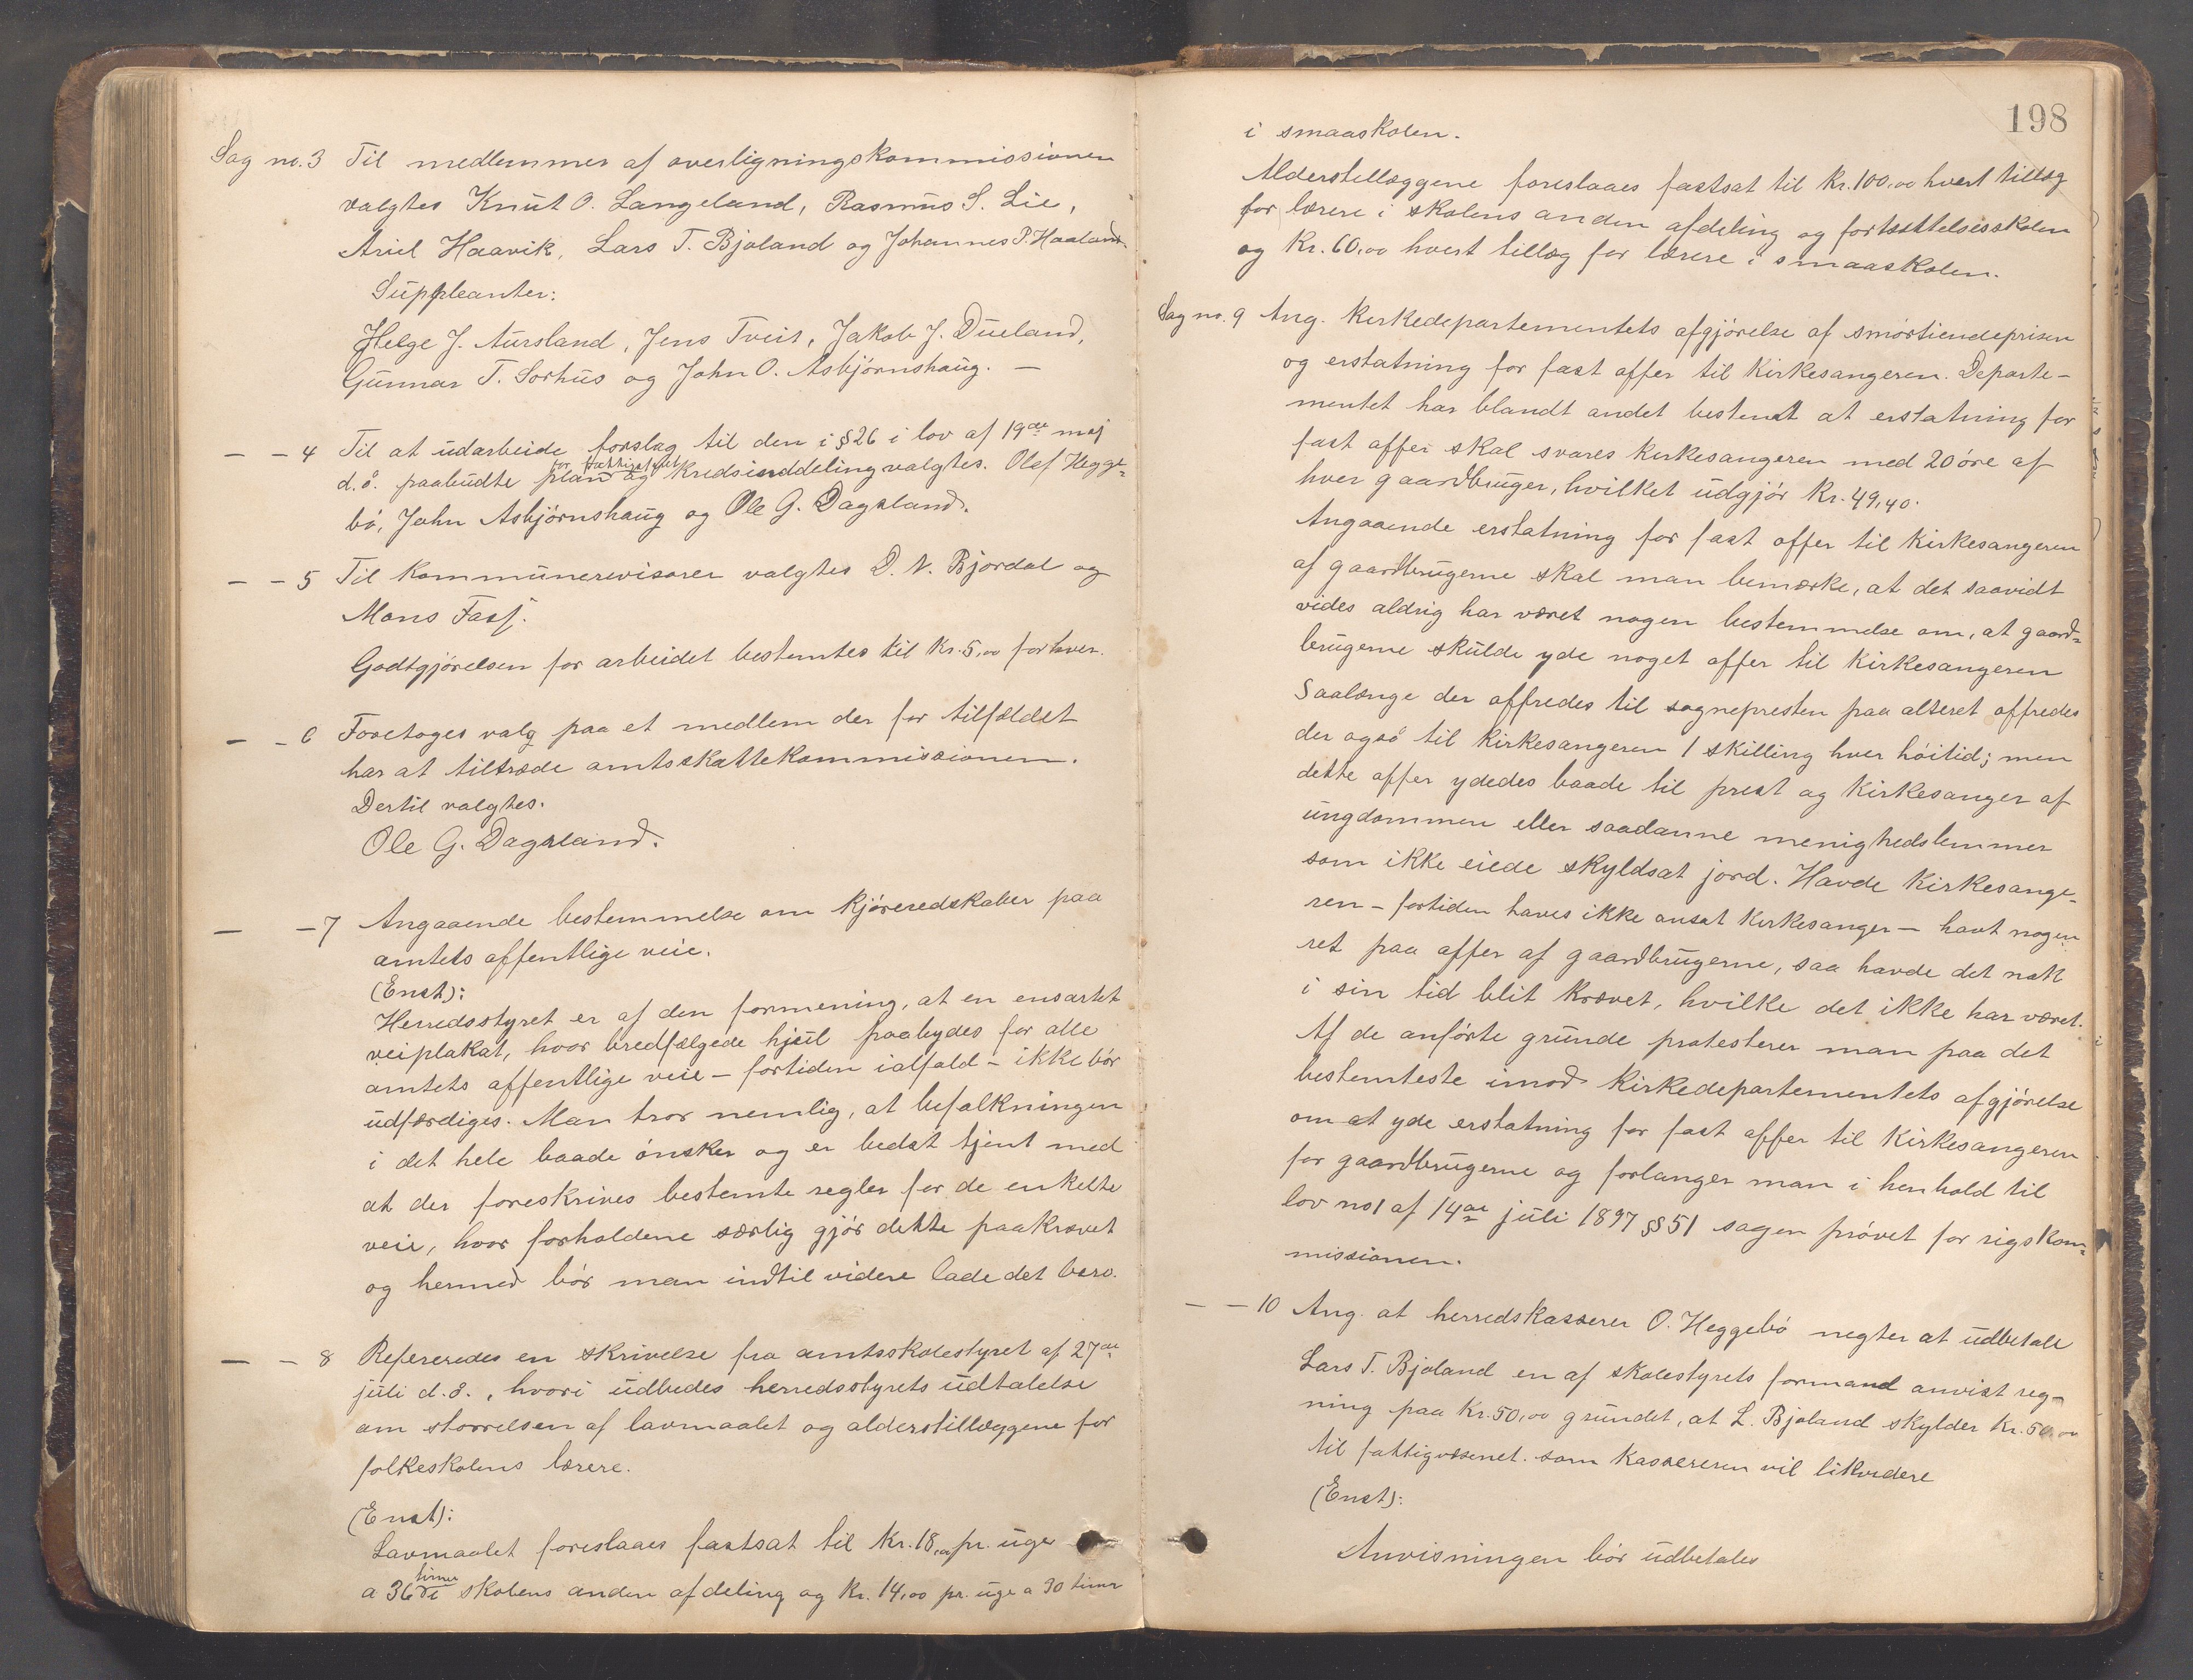 Sag no. 3 Til medlemmer af overligningskommissionen
valgtes Knut O. Langeland, Rasmus S. Lie,
Ariel Haavik, Lars T. Bjoland og Johannes P. Haaland.
Suppleanter:
Helge J. Aursland, Jens Tveit, Jakob J. Dueland,
Gunnar T. Sorhus og John O. Asbjörnshaug. —
— — 4 Til at udarbeide forslag til den i § 26 i lov af 19de maj
for fattigstyret
d. å. paabudte plan og kredsinddeling valgtes. Olef Hegge-
bö, John Asbjörnshaug og Ole G. Dagsland.
— — 5 Til kommunerevisorer valgtes D. N. Bjordal og
Mons Fasj.
Godtgjörelsen for arbeidet bestemtes til Kr. 5,00 for hver.
— — 6 Foretoges valg paa et medlem der for tilfældet
har at tiltræde amtsskattekommissionen.
Dertil valgtes.
Ole G. Dagsland.
— — 7 Angaaende bestemmelse om kjöreredskaber paa
amtets offentlige veie.
(Enst):
Herredsstyret er af den formening, at en ensartet
veiplakat, hvor bredfælgede hjul paabydes for alle
amtets offentlige veie – fortiden ialfald – ikke bör
udfærdiges. Man tror nemlig, at befolkningen
i det hele baade önsker og er bedst tjent med
at der foreskrives bestemte regler for de enkelte
veie, hvor forholdene særlig gjör dette paakrævet
og hermed bör man indtil videre lade det bero.
— — 8 Refereredes en skrivelse fra amtsskolestyret af 27de
juli d. å., hvori udbedes herredsstyrets udtalelse
om storrelsen af lavmaalet og alderstillæggene for
folkeskolens lærere.
(Enst):
Lavmaalet foreslaaes fastsat til Kr. 18,00 pr. uge
timer
a 36 i skolens anden afdeling og Kr. 14,00 pr. uge a 30 timer
198
i smaaskolen.
Alderstillæggene foreslaaes fastsat til Kr. 100,00 hvert tillæg
for lærere i skolens anden afdeling og fortsættelsesskolen
og Kr. 60,00 hvert tillæg for lærere i smaaskolen.
Sag no. 9 Ang. Kirkedepartementets afgjörelse af smörtiendeprisen
og erstatning for fast offer til Kirkesangeren. Departe-
mentet har blandt andet bestemt at erstatning for
fast offer skal svares Kirkesangeren med 20 öre af
hver gaardbruger, hvilket udgjör Kr. 49,40.
Angaaende erstatning for fast offer til Kirkesangeren
af gaardbrugerne skal man bemærke, at det saavidt
vides aldrig har været nogen bestemmelse om, at gaard-
brugerne skulde yde noget offer til Kirkesangeren
Saalænge der offredes til sognepresten paa alteret offredes
der også til Kirkesangeren 1 skilling hver höitid; men
dette offer ydedes baade til prest og Kirkesanger af
ungdommen eller saadanne menighedslemmer
som ikke eiede skyldsat jord. Havde Kirkesange-
ren – fortiden haves ikke ansat Kirkesanger – havt nogen
ret paa offer af gaardbrugerne, saa havde det nok
i sin tid blit krævet, hvilke det ikke har været.
Af de anförte grunde protesterer man paa det
bestemteste imod Kirkedepartementets afgjörelse
om at yde erstatning for fast offer til Kirkesangeren
for gaardbrugerne og forlanger man i henhold til
lov no 1 af 14de juli 1897 § 51 sagen prövet for rigskom-
missionen.
— — 10 Ang. at herredskasserer O. Heggebö negter at udbetale
Lars T. Bjoland en af skolestyrets formand anvist reg-
ning paa Kr. 50,00 grundet, at L. Bjoland skylder Kr. 50,00
til fattigvæsenet. som kassereren vil likvidere
(Enst):
Anvisningen bör udbetales